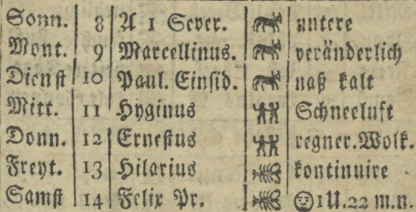 Sonn. 8 A 1 Sever. untere
Mont. 9 Marcellinus. veränderlich
Dienst 10 Paul. Einsid. naß kalt
Mitt. 11 Hyginus Schneeluft
Donn. 12 Ernestus regner. Wolk.
Freyt. 13 Hilarius kontinuire
Samst 14 Felix Pr. 1U. 22 m. n.